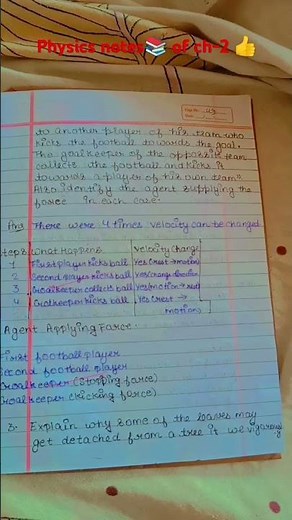 Physics notes📚 of ch-2 👍
to another player of his team who
kicks the football towards the goal.
The goalkeeper of the opposite team
collects the football and kicks it
towards a player of his own team".
Also identify the agent supplying the
force in each case.
Ans There were 4 times velocity can be hanged
Steps What Happens Velocity Change
1 First player kicks ball Yes (rest → motion)
2 Second player kicks ball Yes (change direction
3 Goalkeeper collects ball Yes (motion → rest
4 Goalkeeper kicks ball Yes (rest →
motion)
Agent Applying Force
First football player
Second football player
Goalkeeper (stopping force)
Goalkeeper (kicking force)
3- Explain why some of the leaves may
get detached from a tree if we vigorously